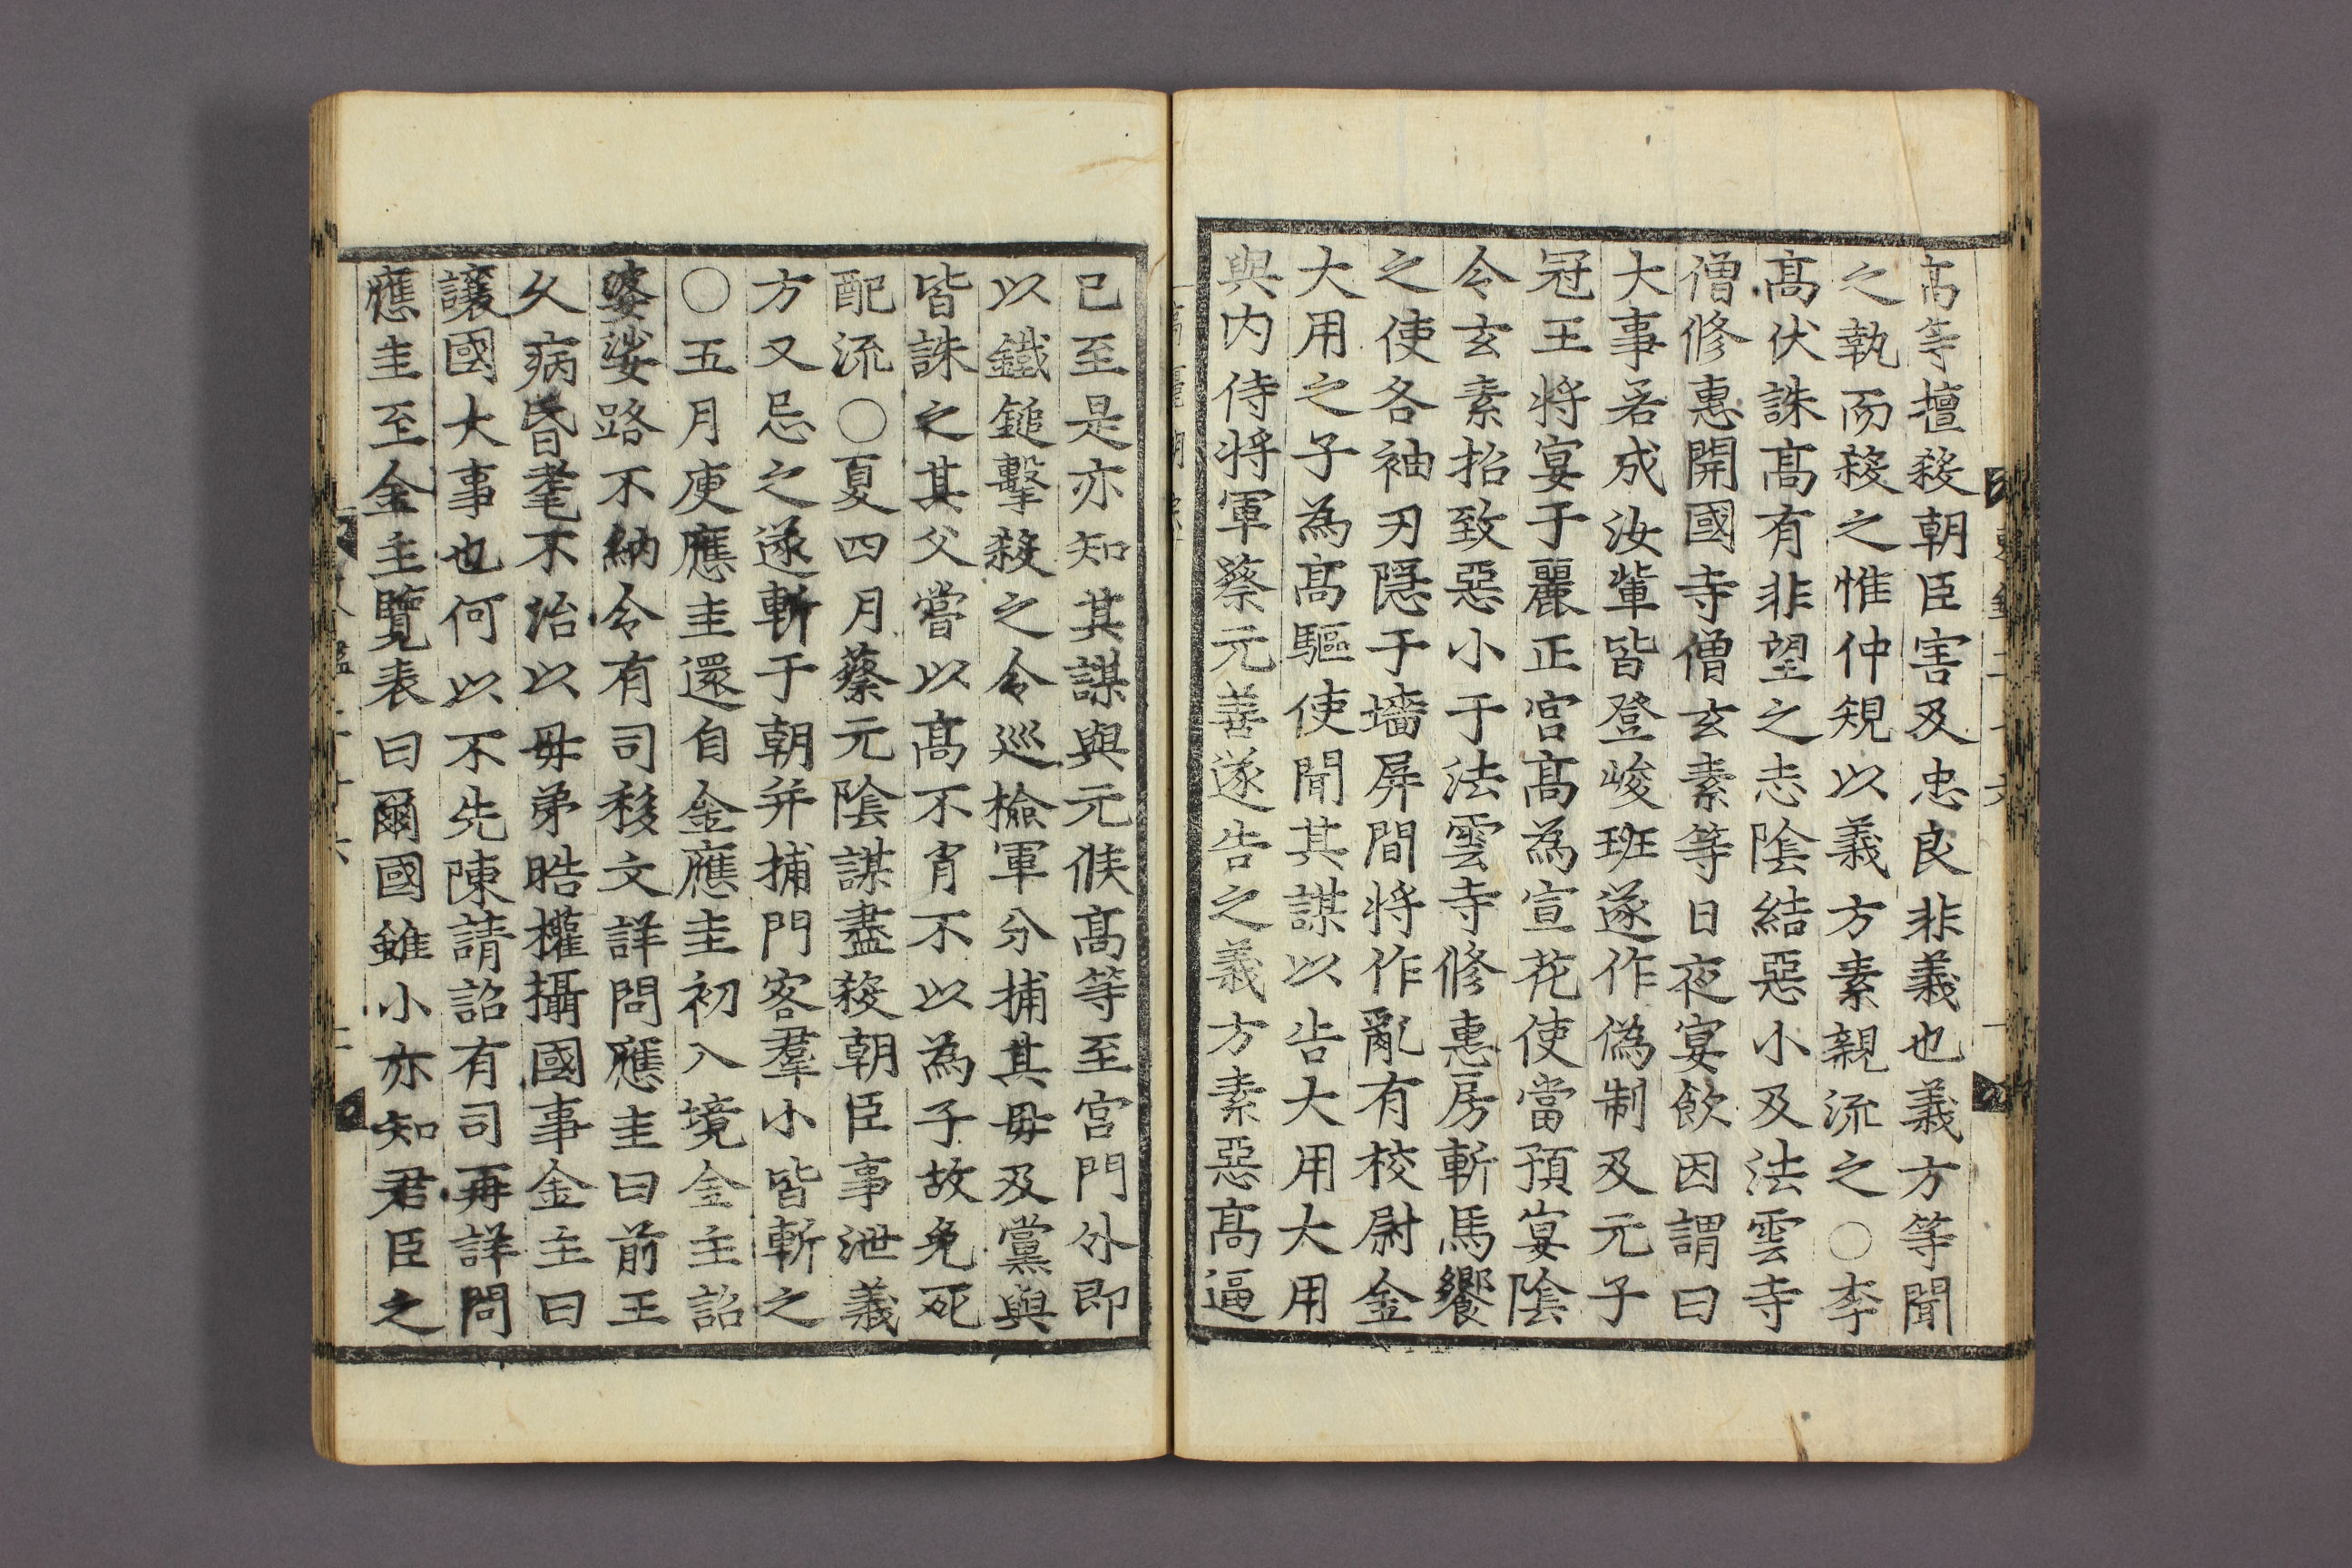 高等擅殺朝臣害及忠良非義也義方等聞
之執而殺之惟仲䂓以義方素親流之○李
高伏誅高有非望之志陰結惡小及法雲寺
僧修惠開國寺僧玄素等日夜宴飮因謂曰
大事若成汝輩皆登峻班遂作偽制及元子
冠王將宴于麗正宮高為宣花使當預宴陰
令玄素招致惡小于法雲寺修惠房斬馬饗
之使各袖刃隱于墻屛間將作亂有校尉金
大用之子為高驅使聞其謀以告大用大用
與内侍將軍蔡元善遂告之義方素惡高逼
己至是亦知其謀與元候高等至宮門外即
以鐵鎚擊殺之令巡檢軍分捕其母及黨與
皆誅之其父嘗以高不肖不以為子故免死
配流○夏四月蔡元陰謀盡殺朝臣事泄義
方又忌之遂斬于朝并捕門客羣小皆斬之
○五月庾應圭還自金應圭初入境金主詔
婆娑路不納令有司移文詳問應圭曰前王
久病昏耄不治以母弟晧權攝國事金主曰
讓國大事也何以不先陳請詔有司再詳問
應圭至金主覽表曰爾國雖小亦知君臣之